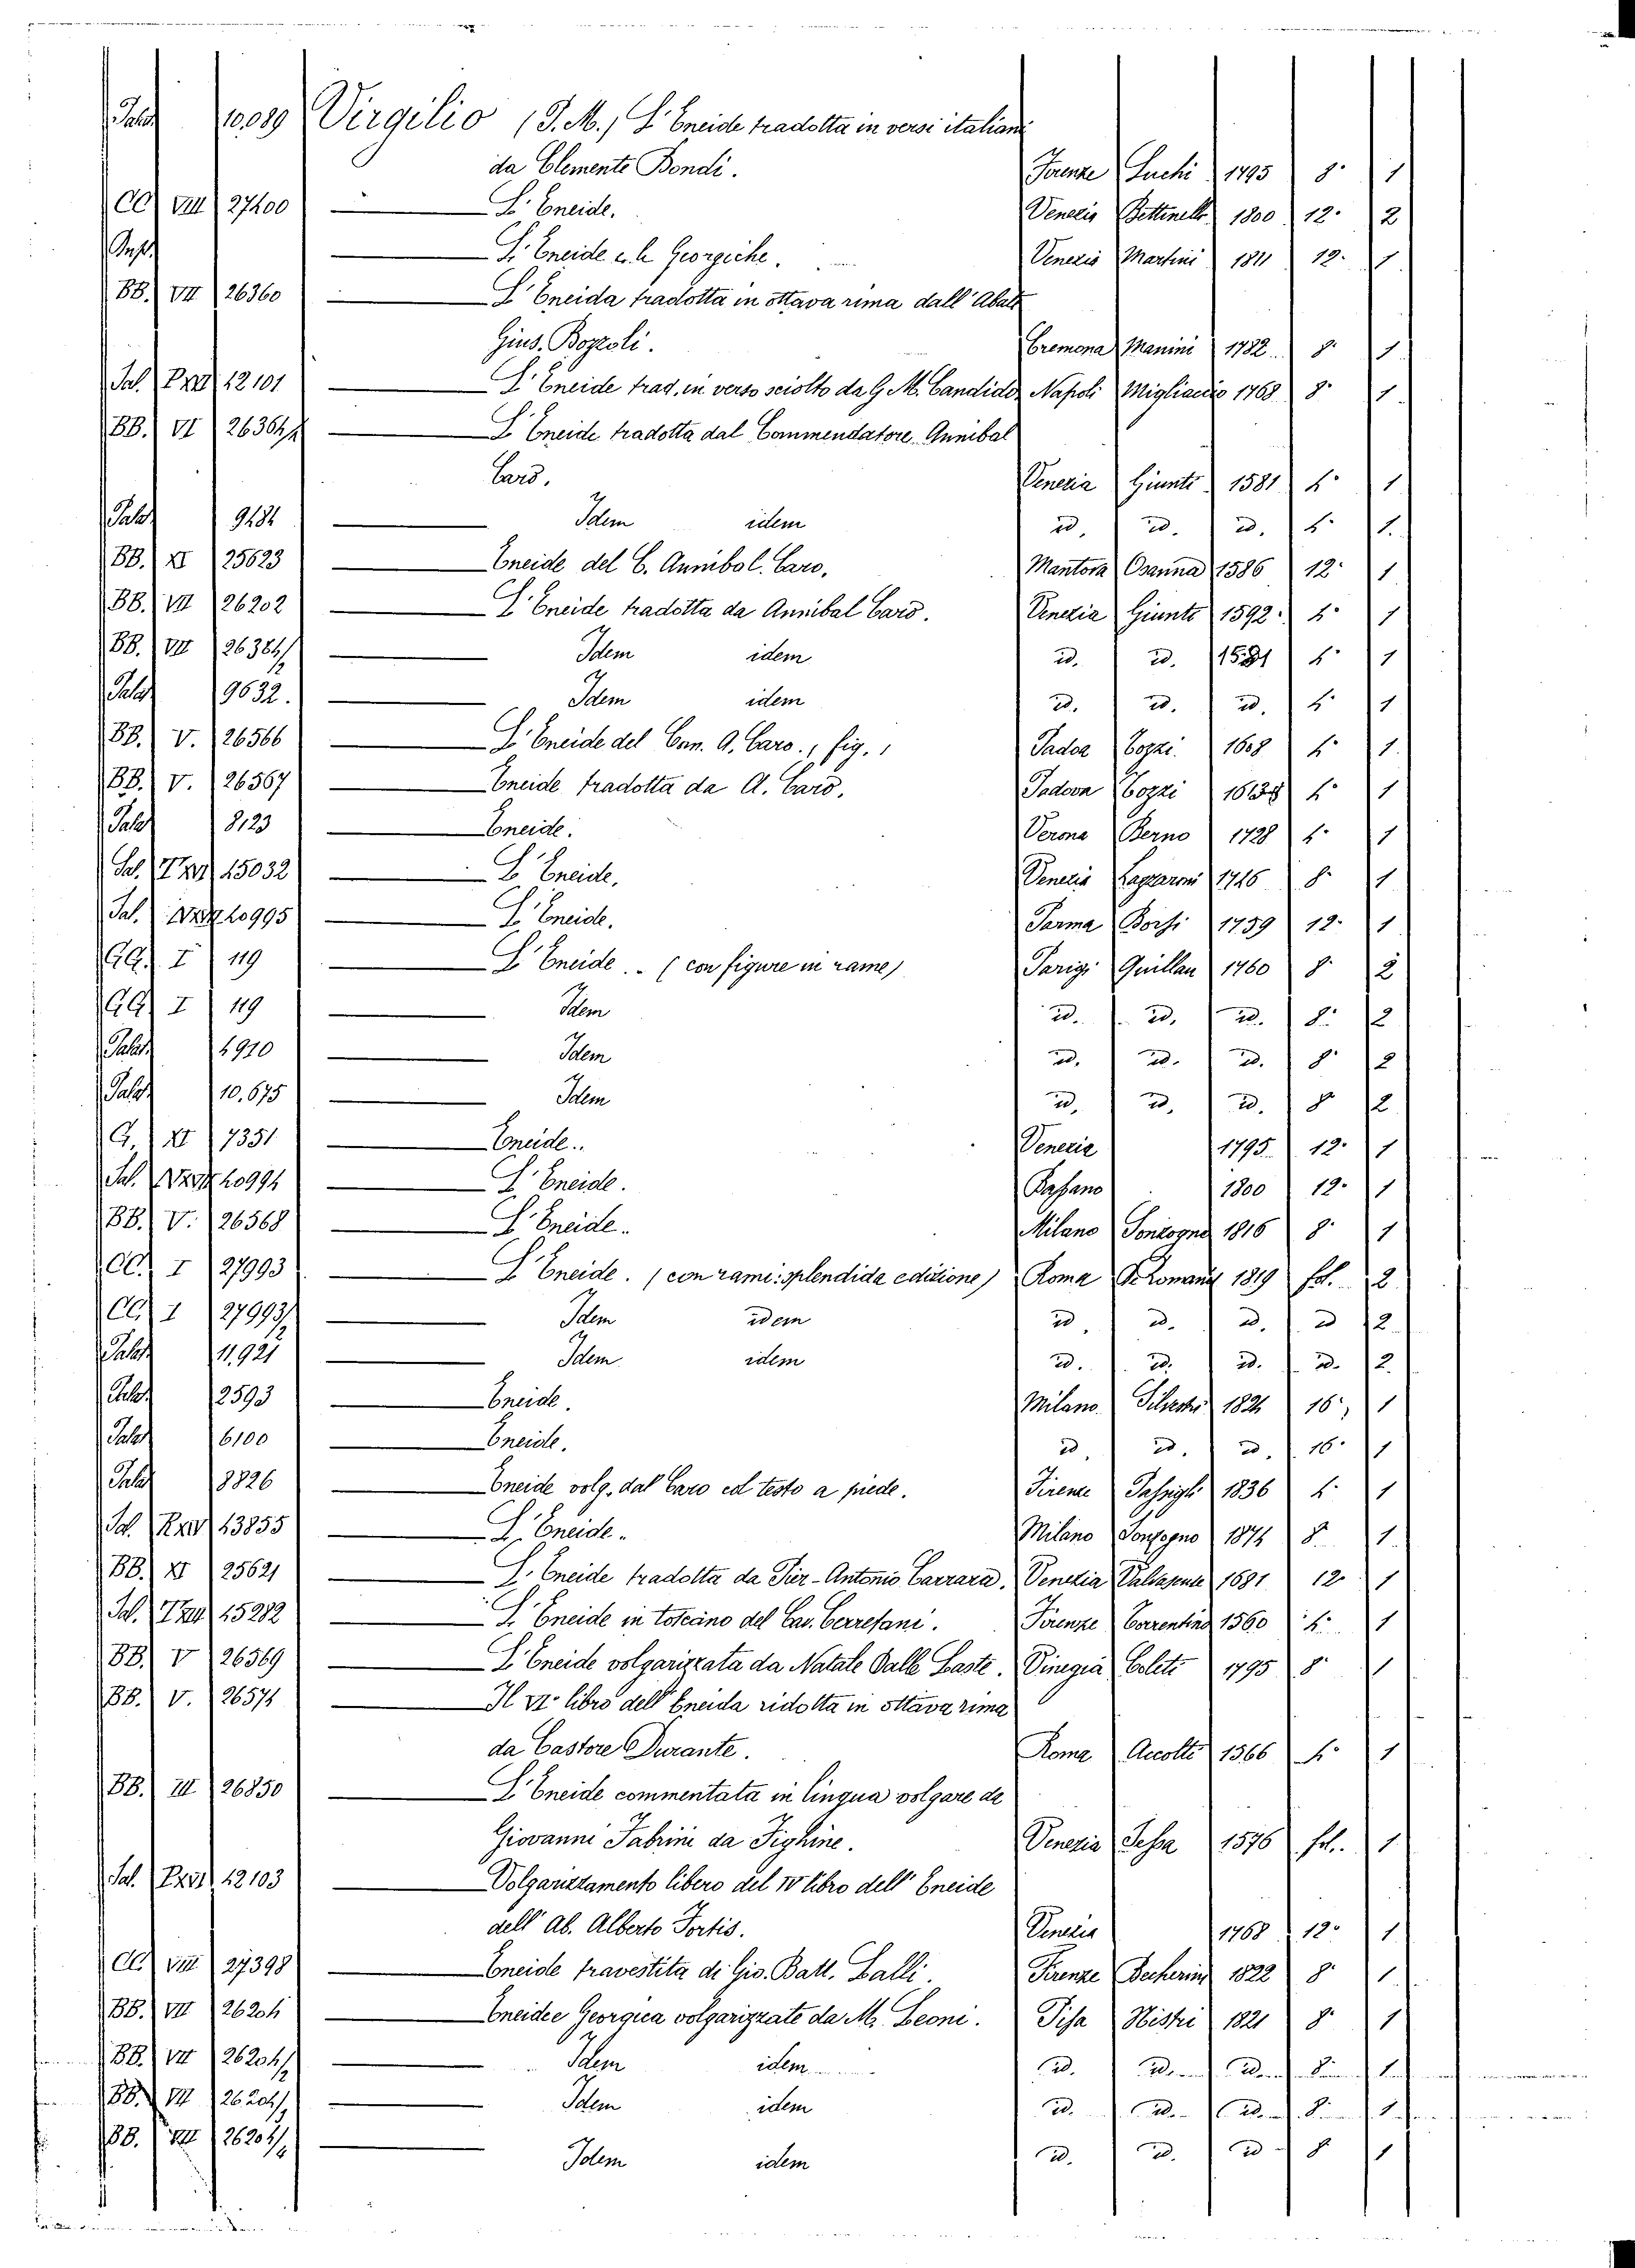 Palat 10,089 Virgilio (P. M.) L'Eneide tradotta in versi italiani
da Clemente Bondi. Firenze Luchi 1795 8° 1
CC VIII 27400 — L'Eneide. Venezia Bettinelli 1800 12° 2
— L'Eneide e le Georgiche. Venezia Martini 1811 12° 1
BB. VII 26360 — L'Eneida tradotta in ottava rima dall'Abate
Gius. Bozzoli. Cremona Manini 1782 8° 1
Sal. 12101 — L'Eneide trad. in verso sciolto da G. M. Candido Napoli Migliaccio 1768 8° 1
BB. VI 26364/2 — L'Eneide tradotta dal Commendatore Annibal
Caro. Venezia Giunti 1581 4° 1
Palat 9484 — Idem idem id. id. id. 4° 1.
BB. XI 25623 — Eneide del C. Annibol. Caro. Mantova Osanna 1586 12° 1
BB. VII 26202 — L'Eneide tradotta da Annibal Caro. Venezia Giunti 1592 4° 1
BB. VII 26384/2 — Idem idem id. id. 4° 1
Palat 9632. — Idem idem id. id. id. 4° 1
BB. V. 26566 — L'Eneide del Com. A. Caro., fig. Padoa Cozzi. 1608 4° 1.
BB. V. 26567 — Eneide tradotta da A. Caro. Padova Cozzi 4° 1
Palat 8123 — Eneide. Verona Berno 1728 4° 1
Sal. 15032 — L'Eneide. Venezia Lazzaroni 1746 8° 1
Sal. 10995 — L'Eneide. Parma Borsi 1759 12° 1
GG. I 119 — L'Eneide.. (con figure in rame) Parigi Quillau 1760 8° 2
GG I 119 — Idem id. id. id. 8° 2
Palat 4920 — Idem id. id. id. 8° 2
Palat 10.675 — Idem id. id. id. 8° 2
G. XI 7351 — Eneide.. Venezia 1795 12° 1
Sal. 10994 — L'Eneide. Bassano 1800 12° 1
BB. V. 26568 — L'Eneide.. Milano Sonzogno 1816 8° 1
CC. I 27993 — L'Eneide. (con rami: splendida edizione) Roma De Romanis 1819 fol. 2
CC. I 27993/2 — Idem idem id. id. id. id 2
Palat 11.921 — Idem idem id. id. id. id. 2.
Palat 2593 — Eneide. Milano Silvestri 1824 16° 1
Palat 6100 — Eneide. id. id. id. 16° 1
Palat 8826 — Eneide volg. dal Caro col testo a piede. Firenze Passigli 1836 4° 1
Sal. 13855 — L'Eneide.. Milano Sonzogno 1874 8 1.
BB. XI 25621 — L'Eneide tradotta da Pier-Antonio Carrara. Venezia Valvasense 1681 12 1
Sal. 15282 — L'Eneide in toscano del Cav. Cerretani. Firenze Torrentino 1560 4° 1
BB. V 26569 — L'Eneide volgarizzata da Natale Dalle Laste. Vinegia Coleti 1795 8° 1
BB. V. 26571 — Il VI° libro dell'Eneida ridotta in ottava rima
da Castore Durante. Roma Accolti 1566 4° 1
BB. III 26850 — L'Eneide commentata in lingua volgare da
Giovanni Fabrini da Fighine. Venezia Sessa 1576 fol. 1
Sal. 12103 — Volgarizzamento libero del IV libro dell'Eneide
dell'Ab. Alberto Fortis. Venezia 1768 12° 1
CC. VIII 27398 — Eneide travestita di Gio. Batt. Lalli. Firenze Becherini 1822 8° 1
BB. VII 26204 — Eneide e Georgica volgarizzate da M. Leoni. Pisa Nistri 1821 8° 1
BB. VII 26204/2 — Idem idem id. id. id. 8 1
BB. VII 26204/3 — Idem idem id. id. id. 8 1
BB. VII 26204/4 — Idem idem id. id. id 8 1